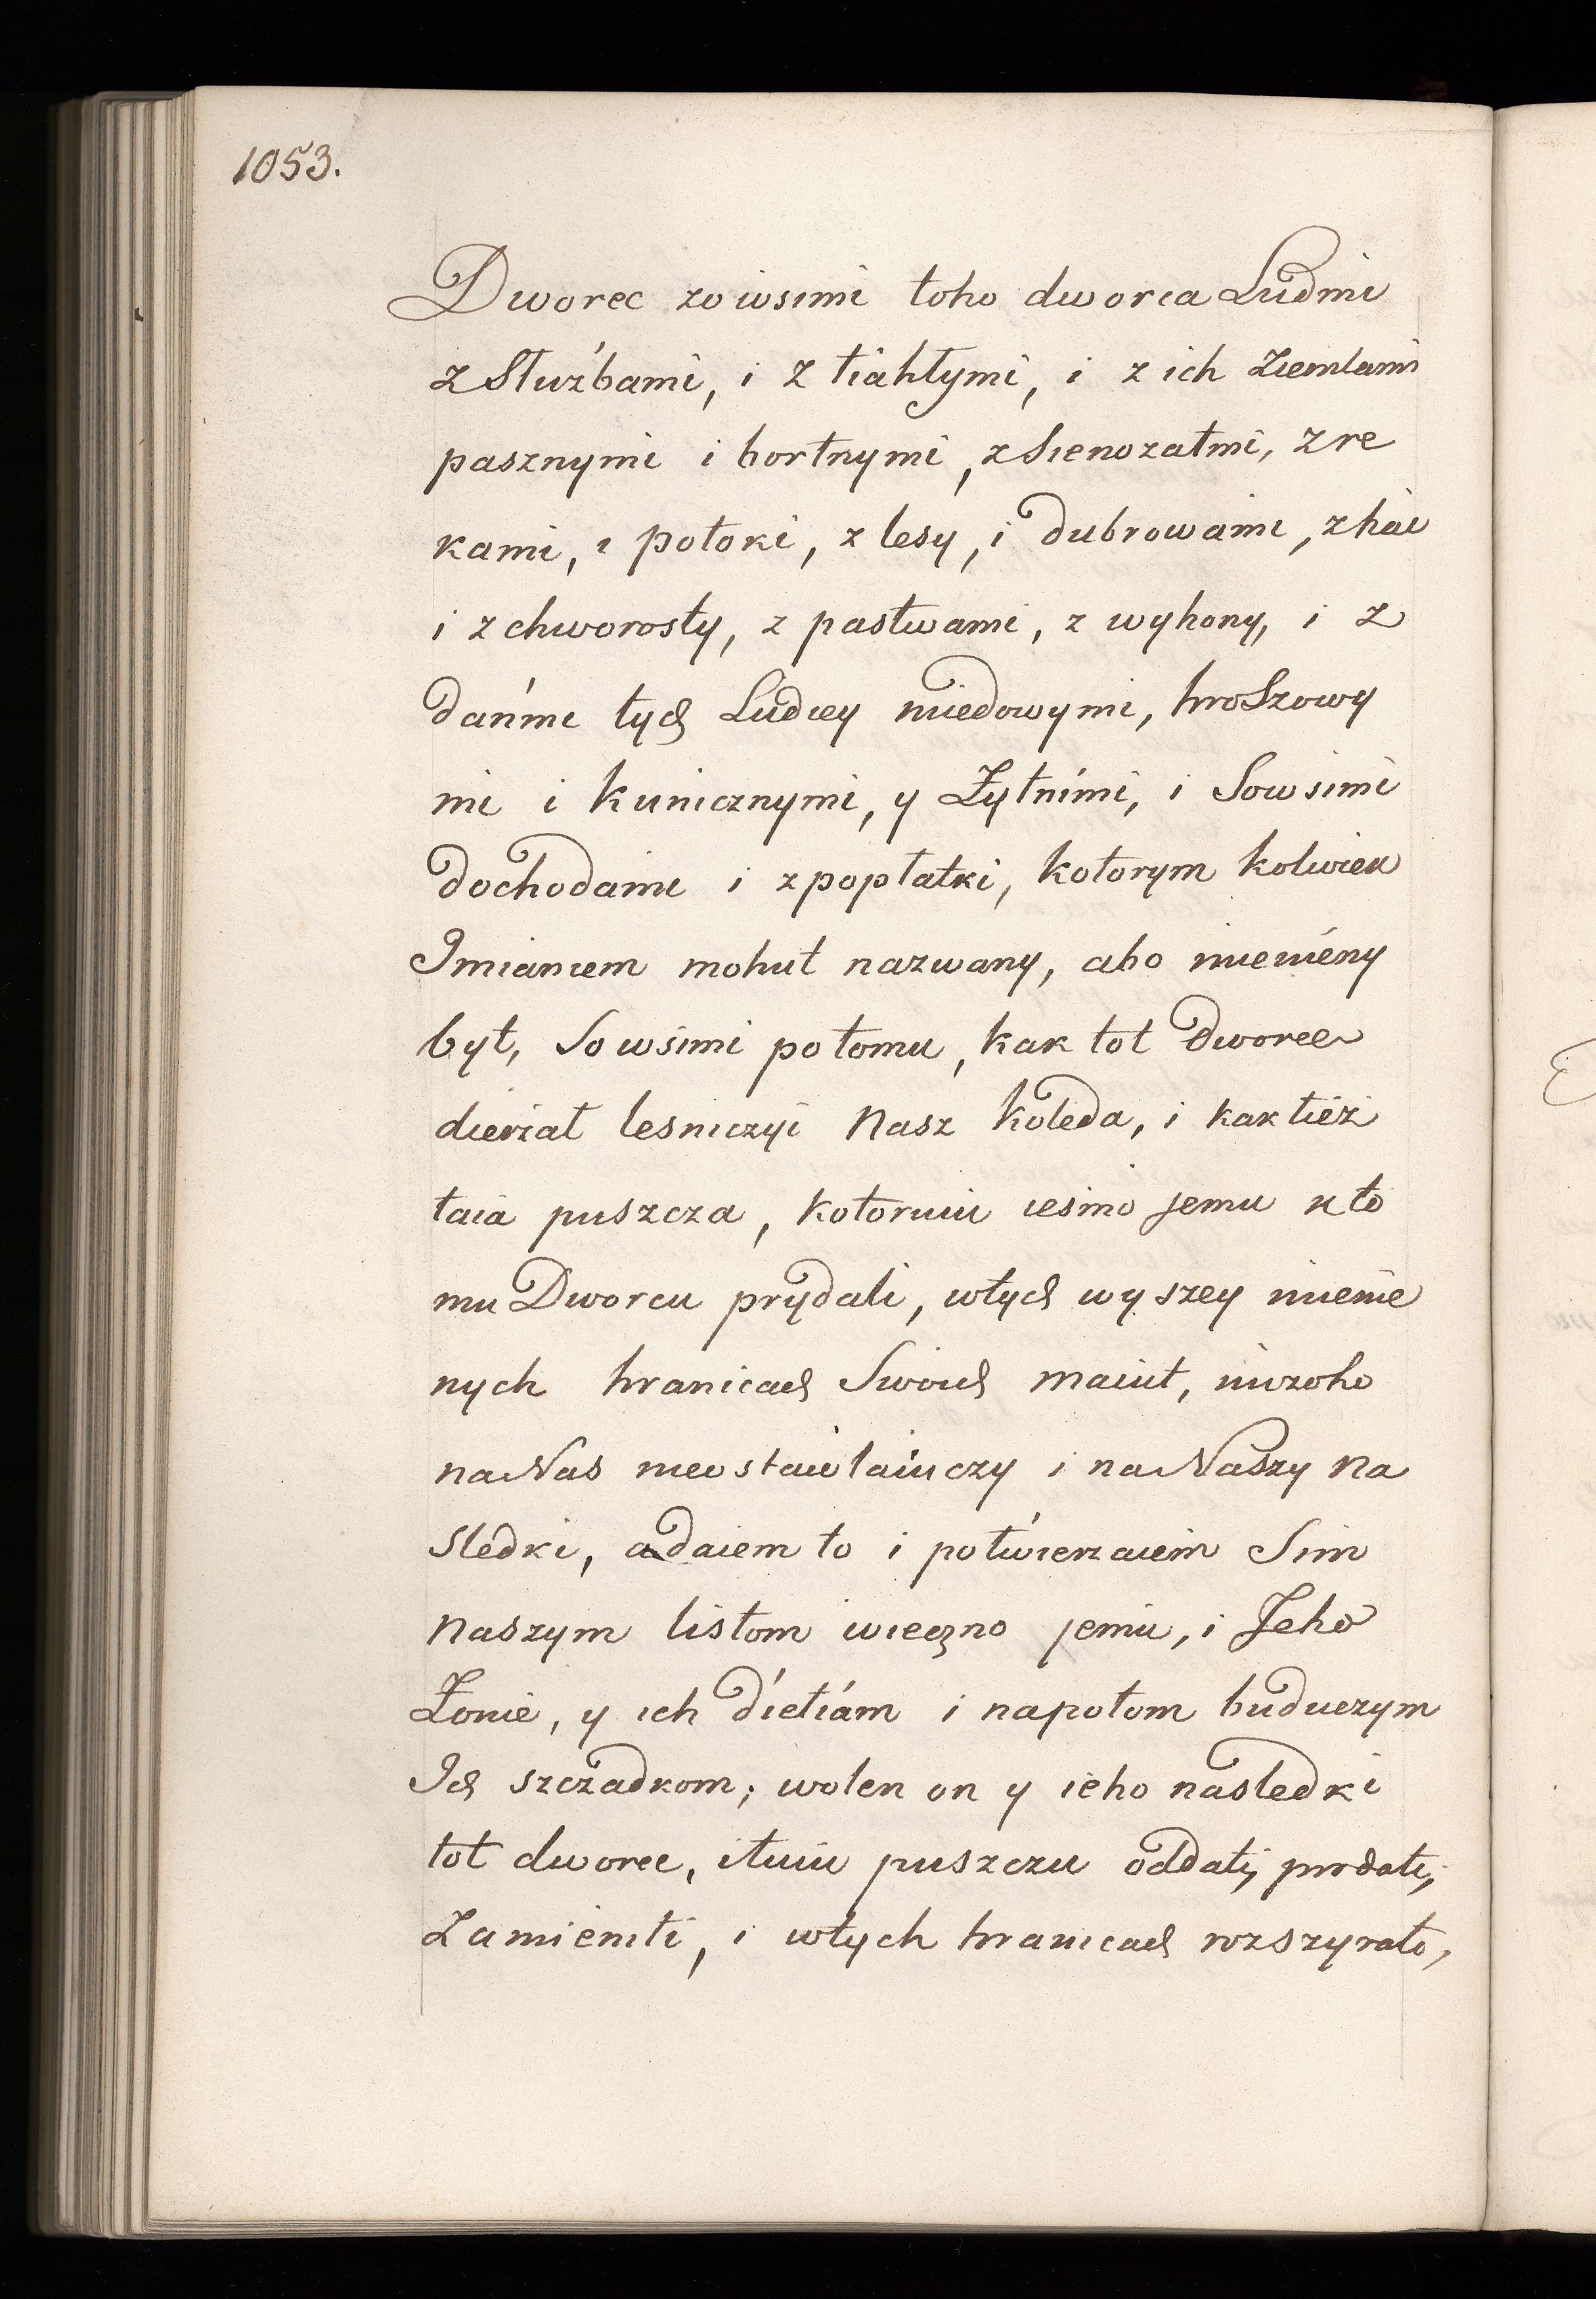 1053.
Dworec zo wsimi toho dworca Ludmi
z Służbami, i z tiahłymi, i z ich ziemlami
pasznymi i bortnymi, z Sienozatmi, z re
kami, i potoki, z lesy, i dubrowami, z hai
i z chworosty, z pastwami, z wyhony, i z
dańmi tych Ludiey miedowymi, hroszowy
mi i kunicznymi, y Żytními, i Sowsimi
dochodami i z popłatki, kotorym kolwiek
Imianiem mohut nazwany, abo imieniény
byt, So wsimi potomu, kak tot dworec
dierżał lesniczyi Nasz Koleda, i kak tież
taia puszcza, kotoruiu iesmo jemu k to
mu Dworcu prydali, w tych wyszey imienie
nych hranicach Swoich maiut, niczoho
na Nas nieostawlaiuczy i na Naszy Na
sledki, a daiem to i potwierzaiem Sim
Naszym listom wieczno jemu, i Jeho
Żonie, y ich dietiám i napotom buduczym
Ich szczadkom; wolen on y ieho nasledki
tot dworec, i tuiu puszczu oddati, prodati,
zamieniti, i w tych hranicach rozszyrato,